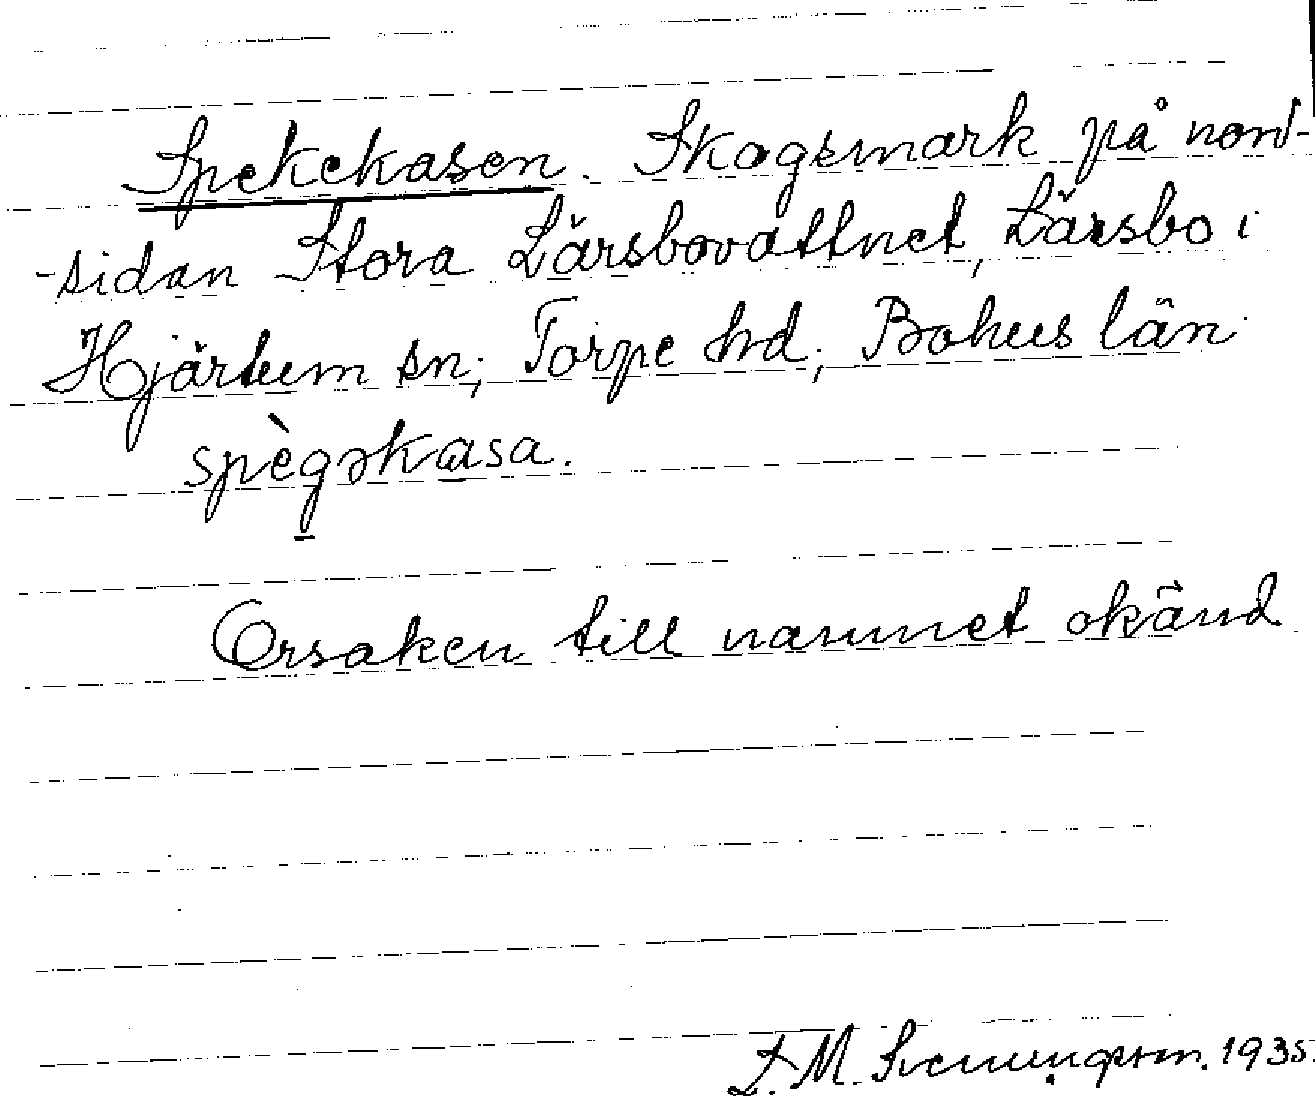 Spekekasen. Skogsmark på nord-
-sidan Stora Lärsbovattnet, Lärsbo i
Hjärtum sn; Torpe hd; Bohus län
spègəkasa.
Orsaken till namnet okänd
L. M. Svenungsson. 1935.